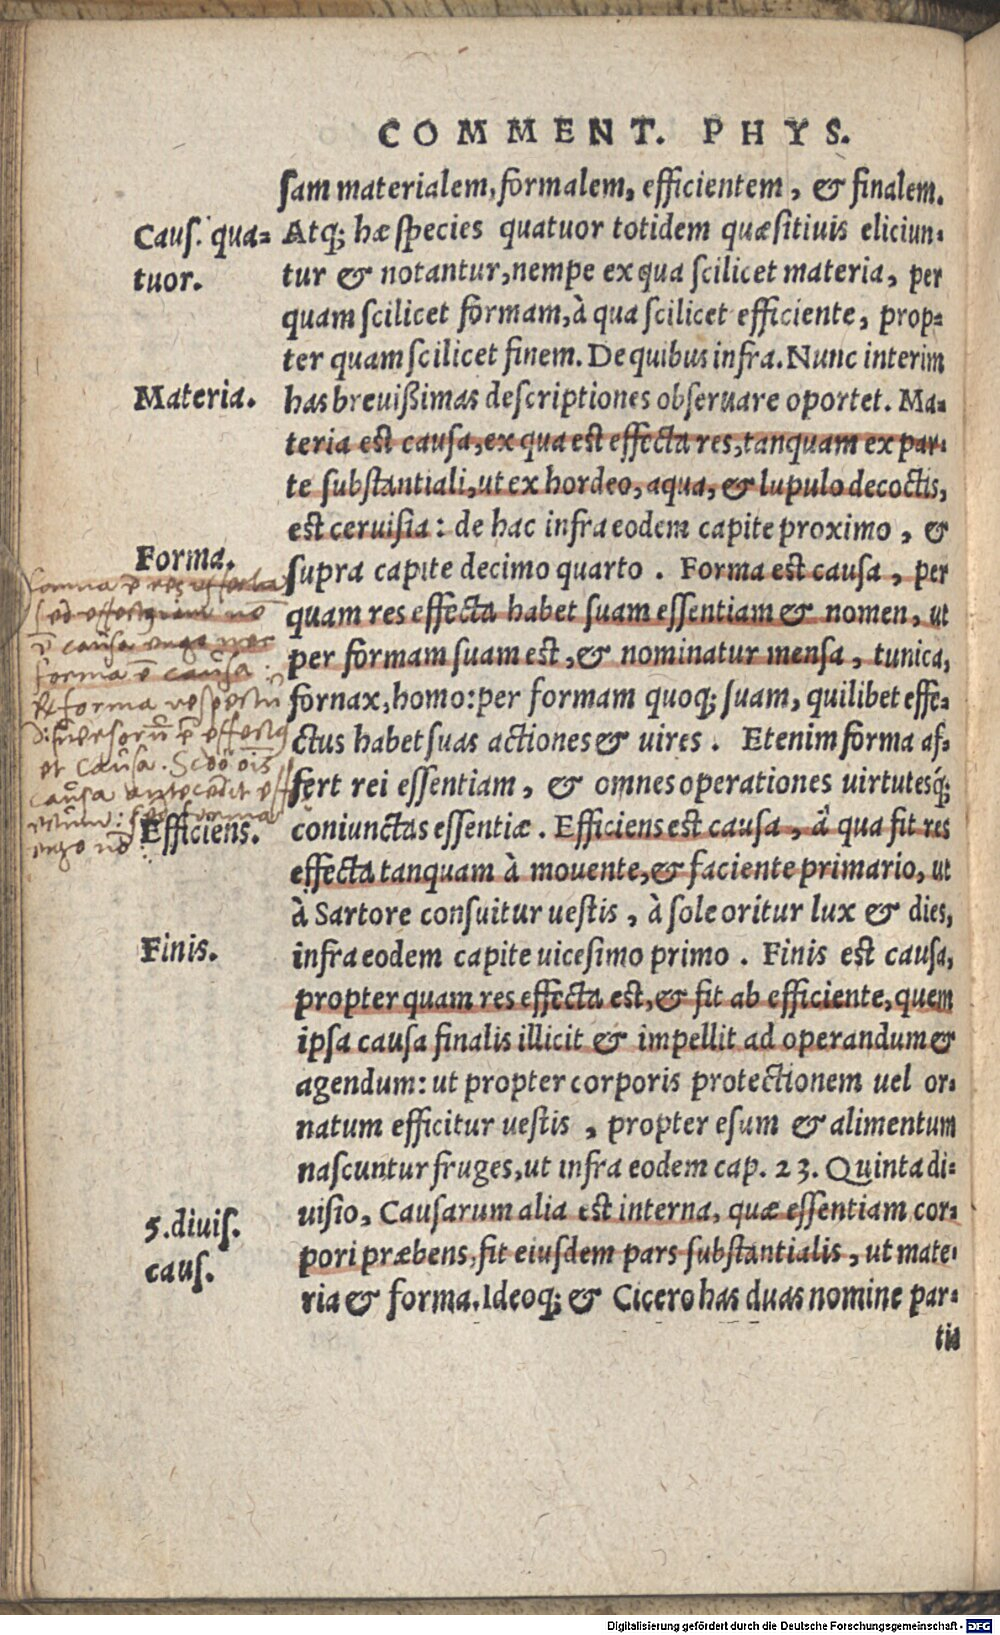 COMMENT. PHYS.
sam materialem, formalem, efficientem, & finalem.
Caus. qua=
tuor.
Atq; hæ species quatuor totidem quæsitiuis eliciun-
tur & notantur, nempe ex qua scilicet materia, per
quam scilicet formam, à qua scilicet efficiente, prop=
ter quam scilicet finem. De quibus infra. Nunc interim
Materia.
has breuißimas descriptiones obseruare oportet. Ma-
teria est causa, ex qua est effecta res, tanquam ex par-
te substantiali, ut ex hordeo, aqua, & lupulo decoctis,
est ceruisia: de hac infra eodem capite proximo, &
Forma.
supra capite decimo quarto. Forma est causa, per
quam res effecta habet suam essentiam & nomen, ut
per formam suam est, & nominatur mensa, tunica,
fornax, homo: per formam quoq; suam, quilibet effe-
ctus habet suas actiones & uires. Etenim forma af-
fert rei essentiam, & omnes operationes uirtutesq́;
forma ē res effecta
sed
ē causa ergo nec
forma ē causa.
forma respectu
ē
et causa.
causa antecedit
forma
ergo nō
Efficiens.
coniunctas essentiæ. Efficiens est causa, à qua fit res
effecta tanquam à mouente, & faciente primario, ut
à Sartore consuitur uestis, à sole oritur lux & dies,
Finis.
infra eodem capite uicesimo primo. Finis est causa,
propter quam res effecta est, & fit ab efficiente, quem
ipsa causa finalis illicit & impellit ad operandum &
agendum: ut propter corporis protectionem uel or-
natum efficitur uestis, propter esum & alimentum
nascuntur fruges, ut infra eodem cap. 23. Quinta di-
5. diuis.
caus.
uisio, Causarum alia est interna, quæ essentiam cor-
pori præbens, fit eiusdem pars substantialis, ut mate-
ria & forma. Ideoq; & Cicero has duas nomine par-
tis
Digitalisierung gefördert durch die Deutsche Forschungsgemeinschaft - DFG